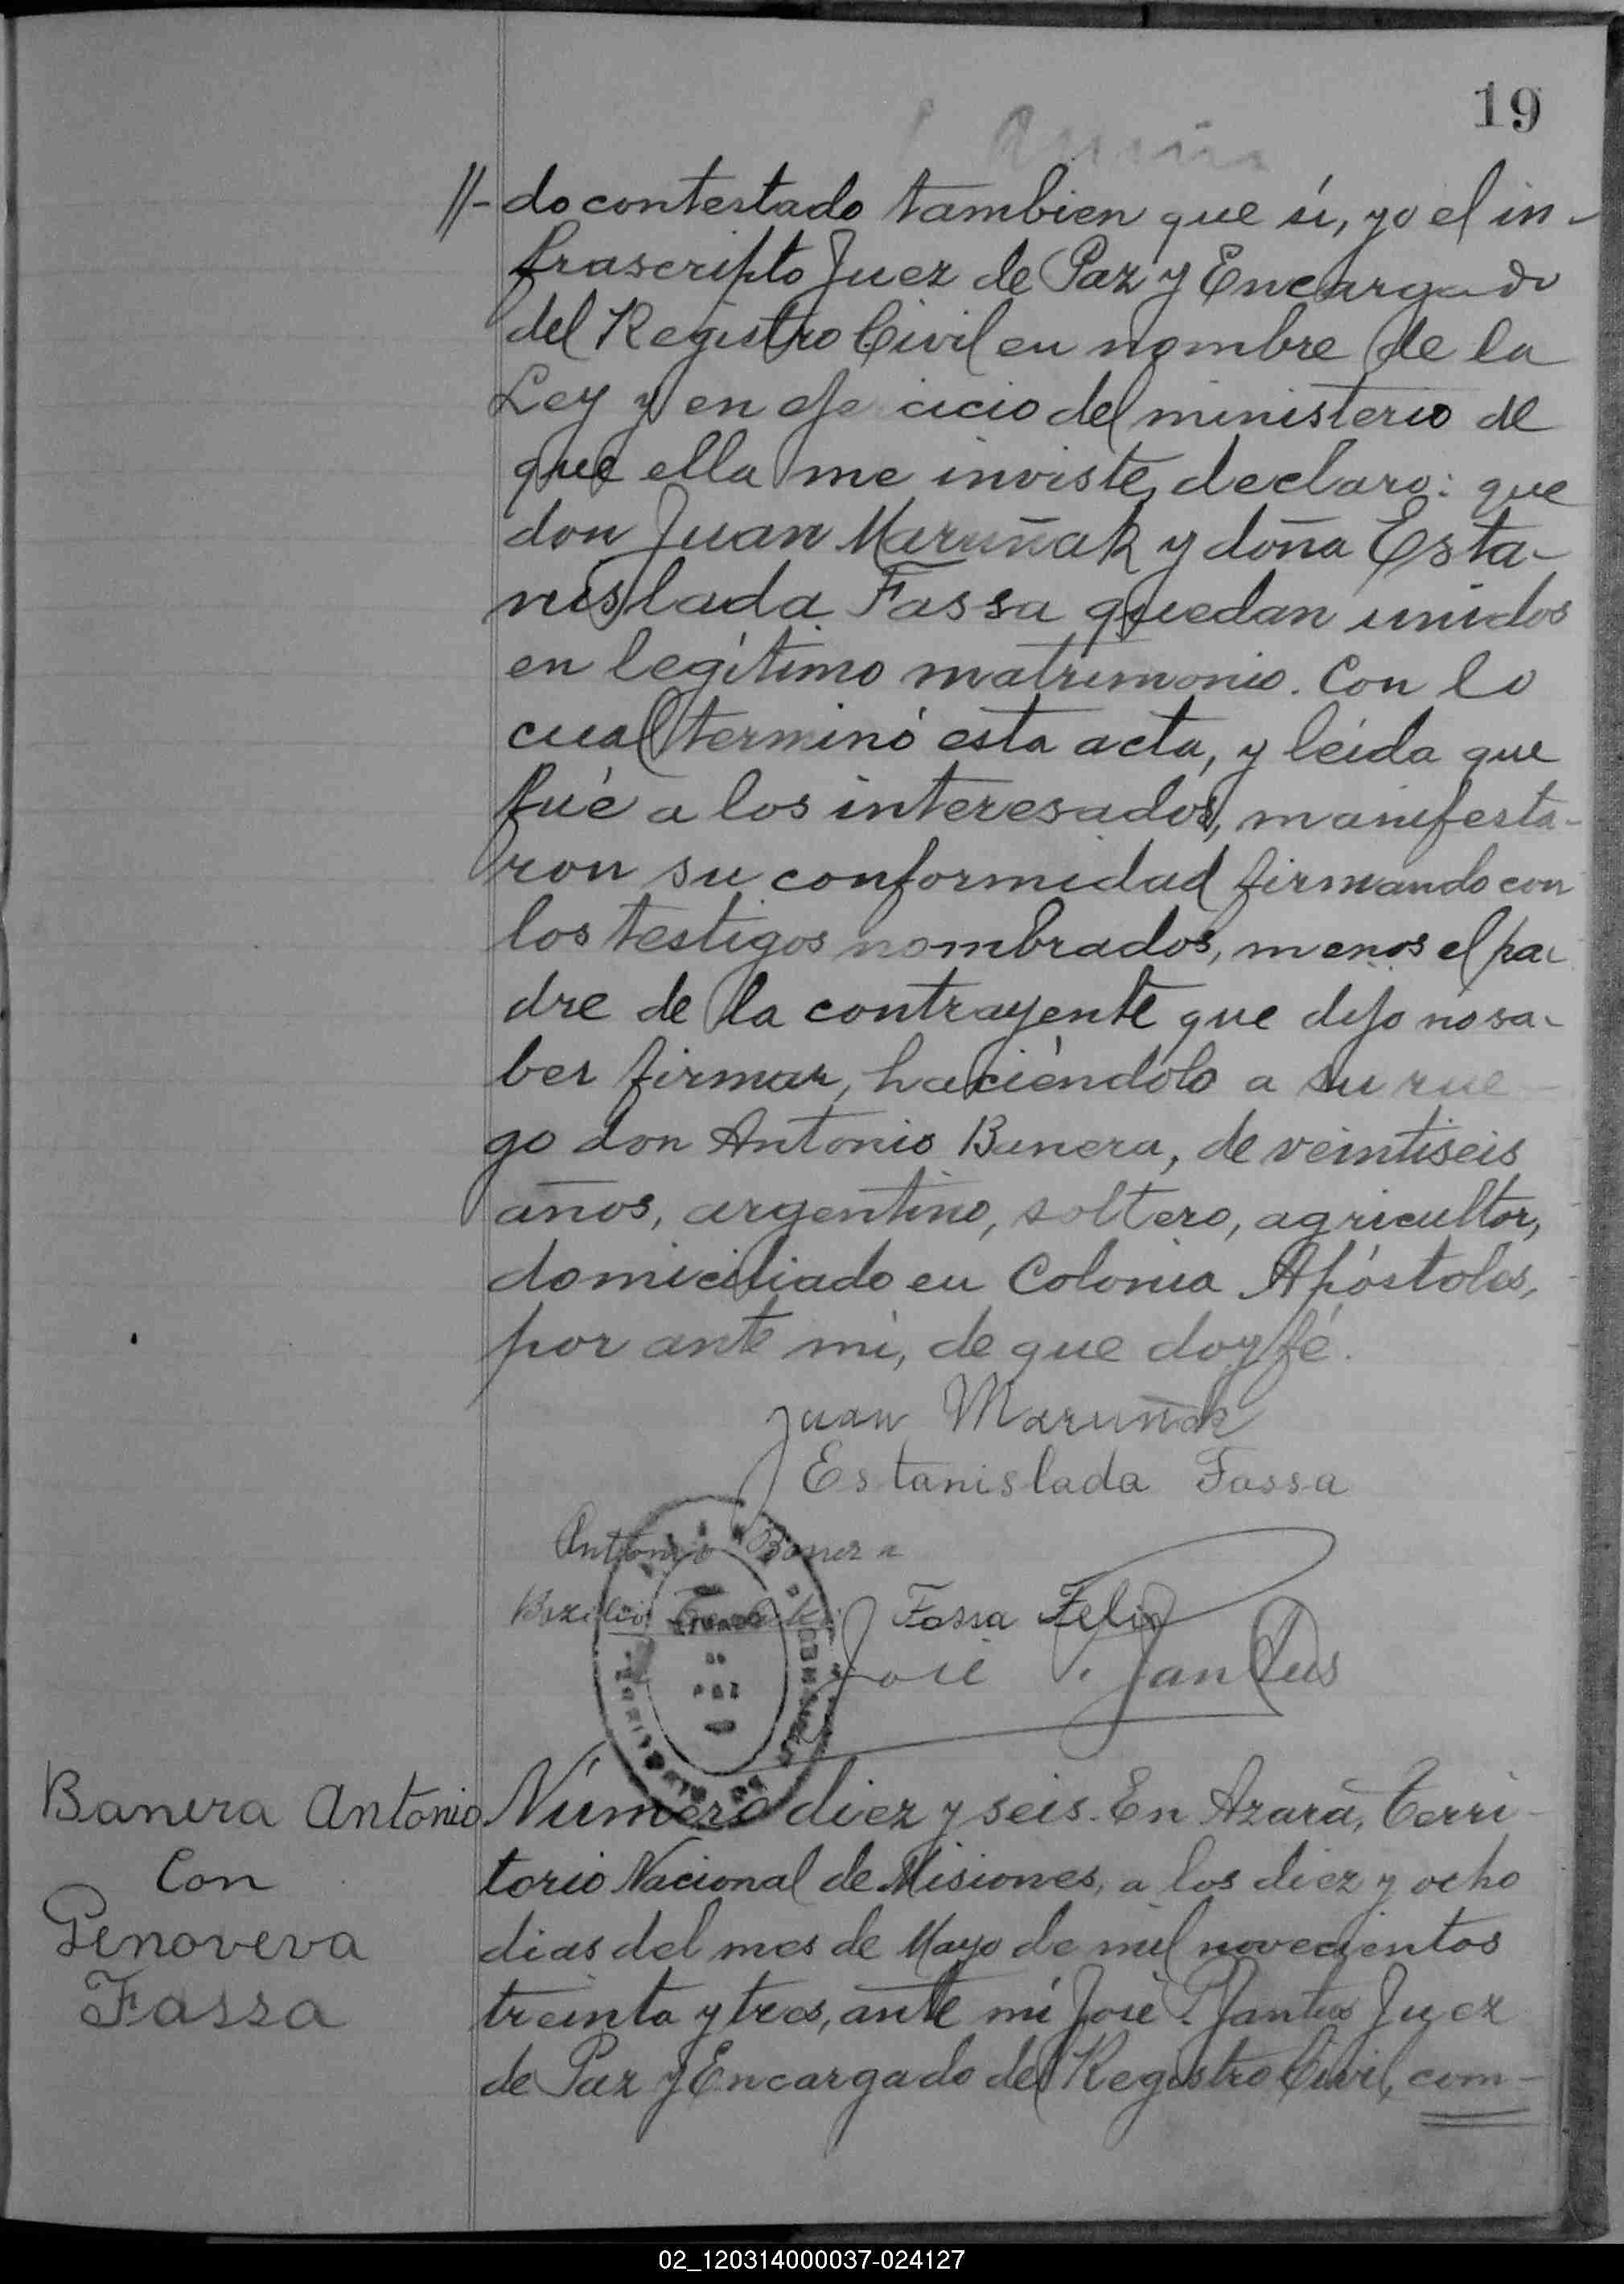 19
//- do contestado tambien que sí, yo el in-
frascripto Juez de Paz y Encargado
del Registro Civil en nombre de la
Ley y en eje cicio del ministerio de
que ella me inviste, declaro: que
don Juan Maruñak y doña Esta-
nislada Fassa quedan unidos
en legítimo matrimonio. Con lo
cual terminó esta acta, y leída que
fué a los interesados, manifesta-
ron su conformidad firmando con
los testigos nombrados, menos el pa-
dre de la contrayente que dijo no sa-
ber firmar, haciéndolo a su rue-
go don Antonio Banera, de veintiseis
años, argentino, soltero, agricultor,
domiciliado en Colonia Apóstoles,
por ante mí, de que doy fé.
Juan Maruñak
Estanislada Fassa
Antonio Banera
Bazilio
Fassa Felix
José P. Jantus
Banera Antonio
Con
Genoveva
Fassa
Número diez y seis. En Azara, Terri-
torio Nacional de Misiones, a los diez y ocho
dias del mes de Mayo de mil novecientos
treinta y tres, ante mí José P. Jantus Juez
de Paz y Encargado del Registro Civil, com-
02_120314000037-024127